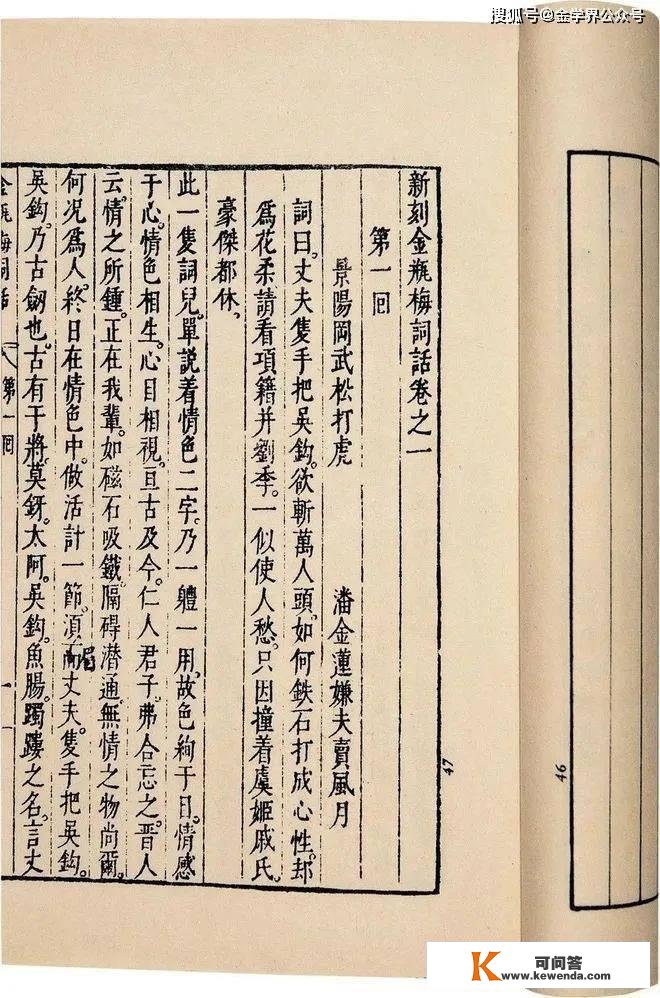 搜狐号@金学界公众号
新刻金瓶梅詞話卷之一
第一回
景陽岡武松打虎　潘金蓮嫌夫賣風月
詞曰。丈夫隻手把吳鈎。欲斬萬人頭。如何鉄石打成心性。却
爲花柔請看項籍并劉季。一似使人愁。只因撞着虞姬戚氏。
豪傑都休。
此一隻詞兒。單說着情色二字。乃一軆一用。故色絢于目。情感
于心。情色相生。心目相視。亘古及今。仁人君子。弗合忘之。晋人
云。情之所鍾。正在我輩。如磁石吸鐵。隔碍潛通。無情之物尚爾。
何况爲人。終日在情色中。做活計一節。須丈夫。隻手把吳鈎。
吳鈎。乃古劔也。古有干將。莫鋣。太阿。吳鈎。魚腸。躅躞之名。言丈
金瓶梅詞話
第一回
一
47
46
K 可问答
www.kewenda.com